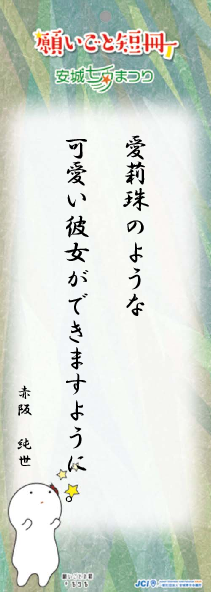 願いごと短冊
安城七夕まつり
愛莉珠のような
可愛い彼女ができますように。
赤阪 純世
JCI